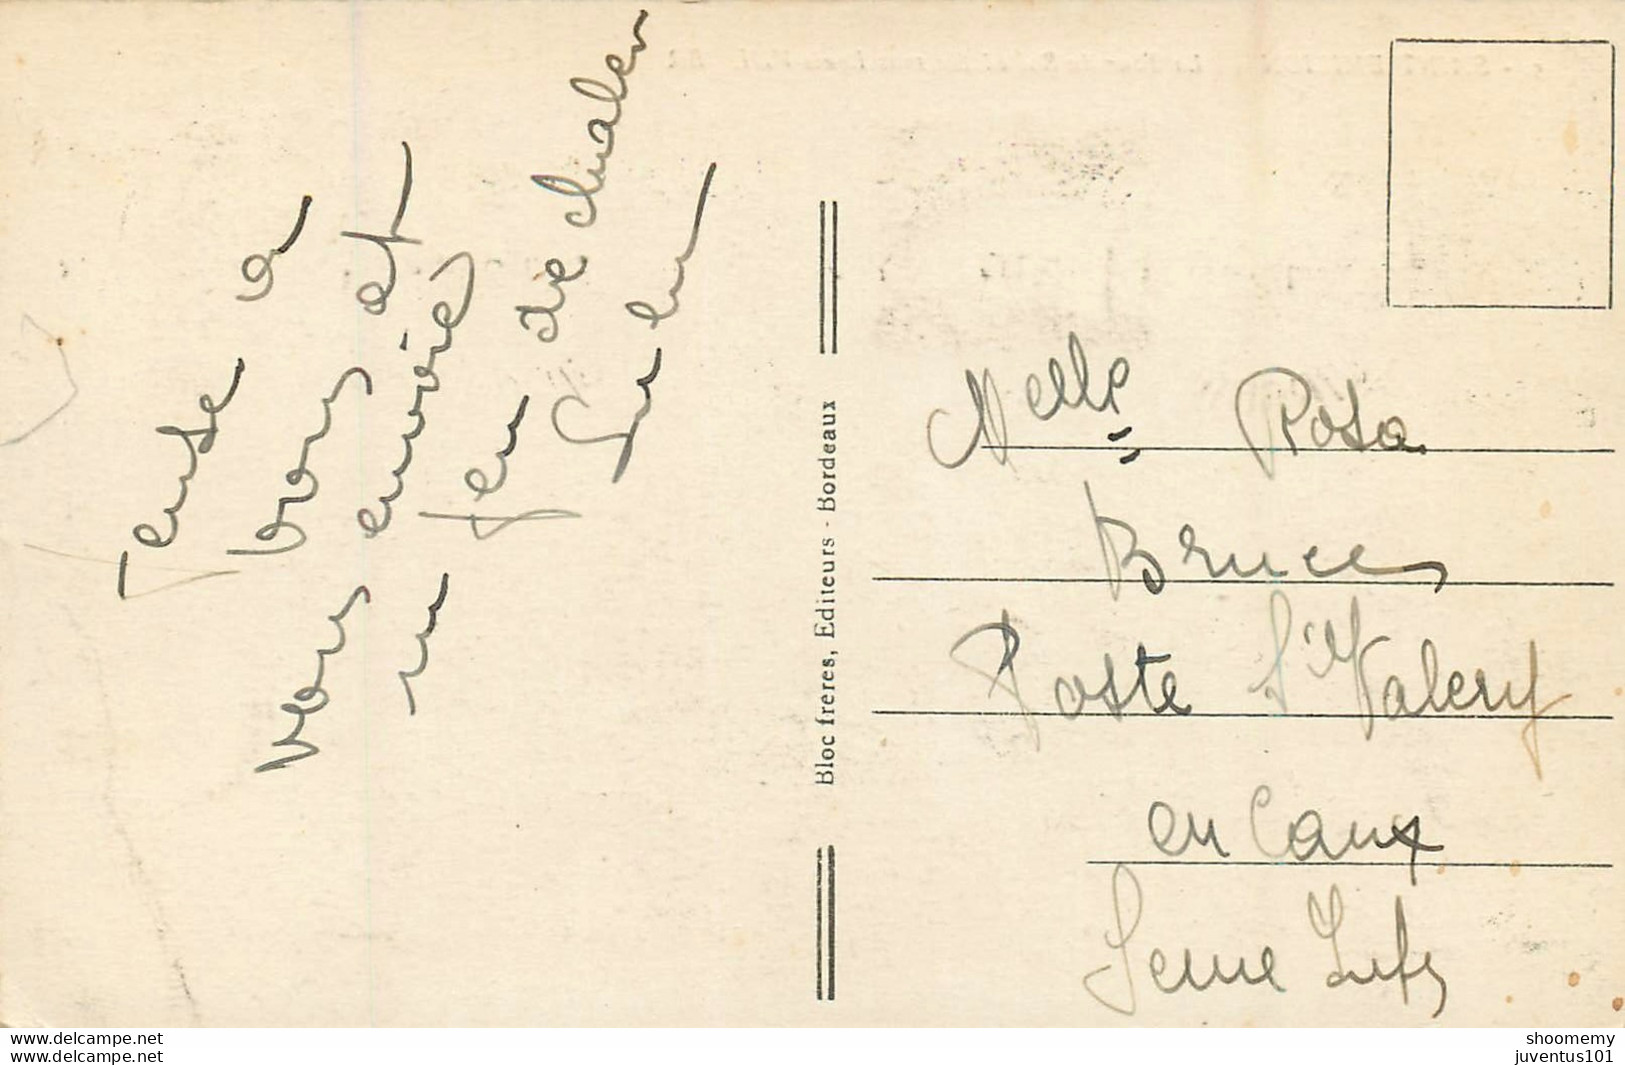 Pense a
vous et
vous envoie
un peu de chaleur
Bloc frères, Editeurs - Bordeaux
Melle Rosa
Bruce
Poste St Valery
en Caux
Seine Infr
www.delcampe.net
www.delcampe.net
shoomemy
juventus101